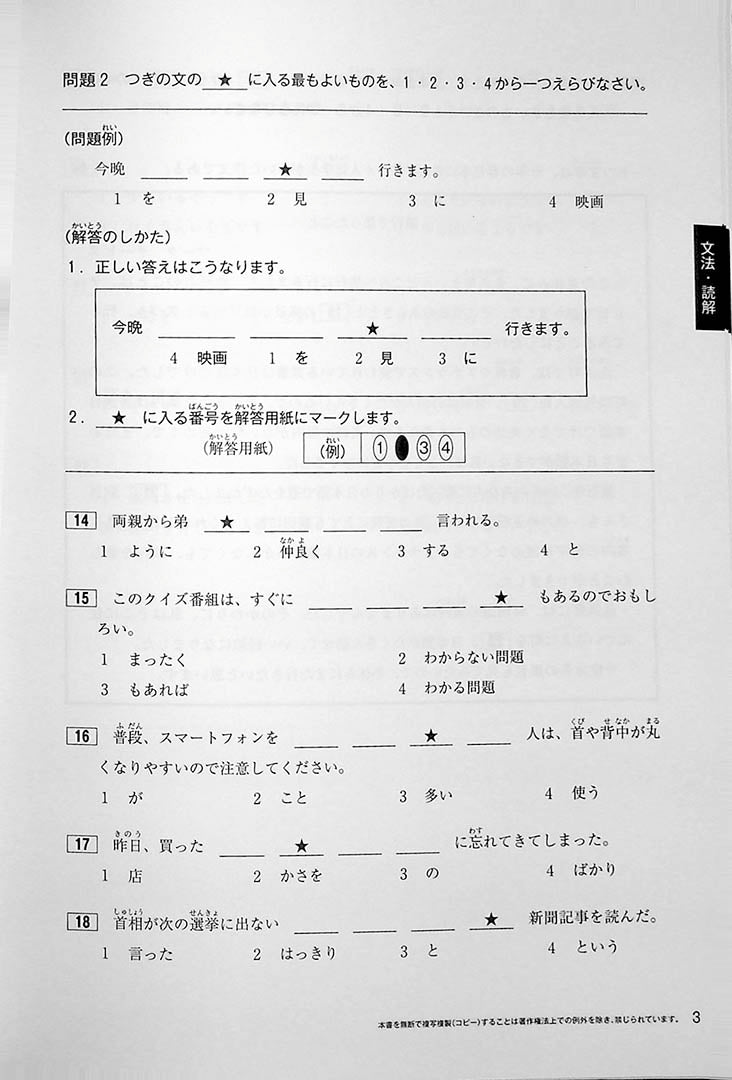 問題2 つぎの文の ★ に入る最もよいものを、1・2・3・4から一つえらびなさい。
(問題例)
れい
今晩 ____ ____ ★ ____ 行きます。
1 を 2 見 3 に 4 映画
(解答のしかた)
かいとう
1. 正しい答えはこうなります。
今晩 ____ ____ ★ ____ 行きます。
4 映画 1 を 2 見 3 に
2. ★ に入る番号を解答用紙にマークします。
ばんごう かいとう
(解答用紙) (例) ① ③ ④
かいとう れい
文法・読解
14 両親から弟 ★ ____ ____ ____ 言われる。
1 ように 2 仲良く 3 する 4 と
なか よ
15 このクイズ番組は、すぐに ____ ____ ____ ★ もあるのでおもし
ろい。
1 まったく 2 わからない問題
3 もあれば 4 わかる問題
16 普段、スマートフォンを ____ ____ ★ ____ 人は、首や背中が丸
ふ だん くび せ なか まる
くなりやすいので注意してください。
1 が 2 こと 3 多い 4 使う
17 昨日、買った ____ ★ ____ ____ に忘れてきてしまった。
きのう わす
1 店 2 かさを 3 の 4 ばかり
18 首相が次の選挙に出ない ____ ____ ____ ★ 新聞記事を読んだ。
しゅしょう せんきょ
1 言った 2 はっきり 3 と 4 という
本書を無断で複写複製(コピー)することは著作権法上での例外を除き、禁じられています。 3